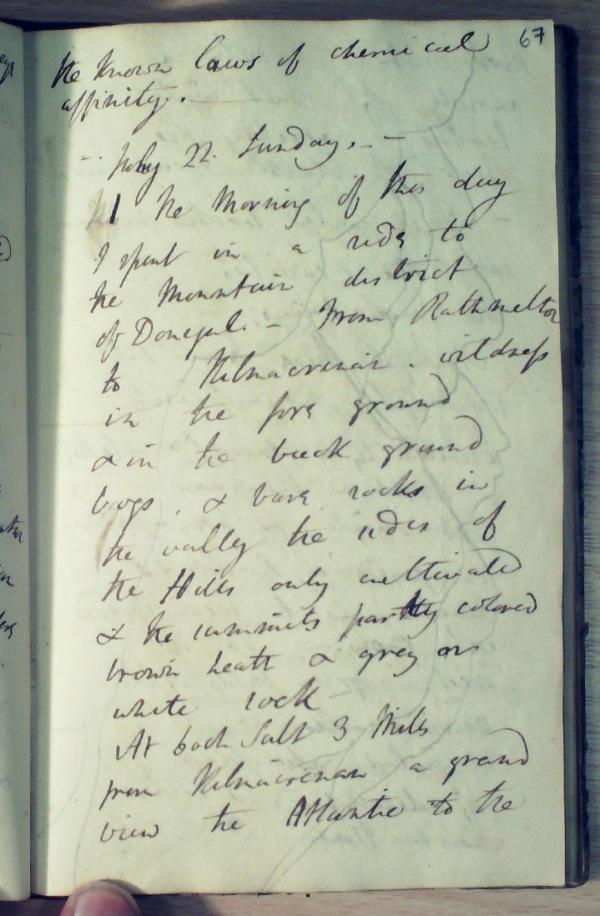 67
the known laws of chemical
affinity. —
- July 22 Sunday. - -
The morning of this day
I spent in a ride to
the Mountain district
of Donegal. - From Rathmelton
to Kilmacrenan. wildness
in the fore ground
& in the back ground
bogs, & bare rocks in
the valley the sides of
the Hills only cultivated
& the summits partly colored
brown heath & grey or
white rock
At Salt 3 Mills
from Kilmacrenan a grand
view the Atlantic to the